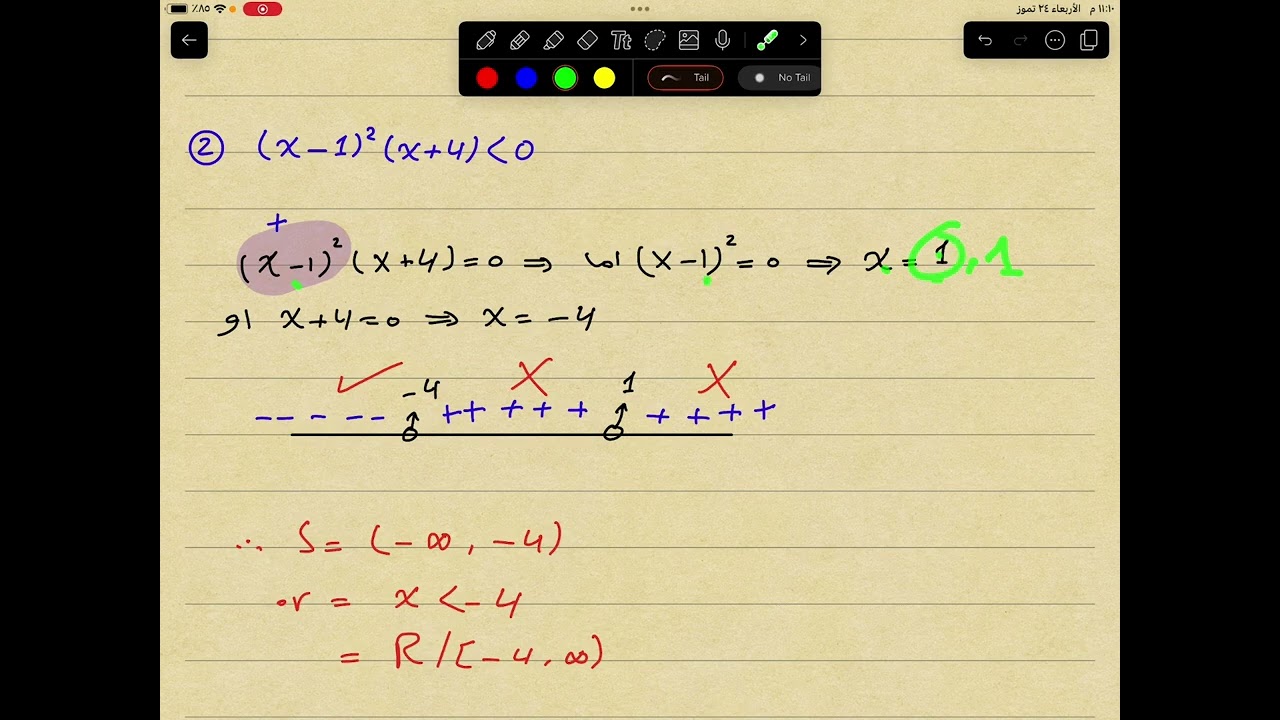 ٪٨٥ الأربعاء ٢٤ تموز ١١:١٠ م
Tt
Tail No Tail
② (x-1)² (x+4) < 0
+
(x-1)² (x+4) = 0 ⇒ اما (x-1)² = 0 ⇒ x = 1, 1
او x+4=0 ⇒ x = -4
-4 1
-- - -- ++ ++ + + + + +
∴ S = (-∞, -4)
or = x < -4
= R/[-4, ∞)